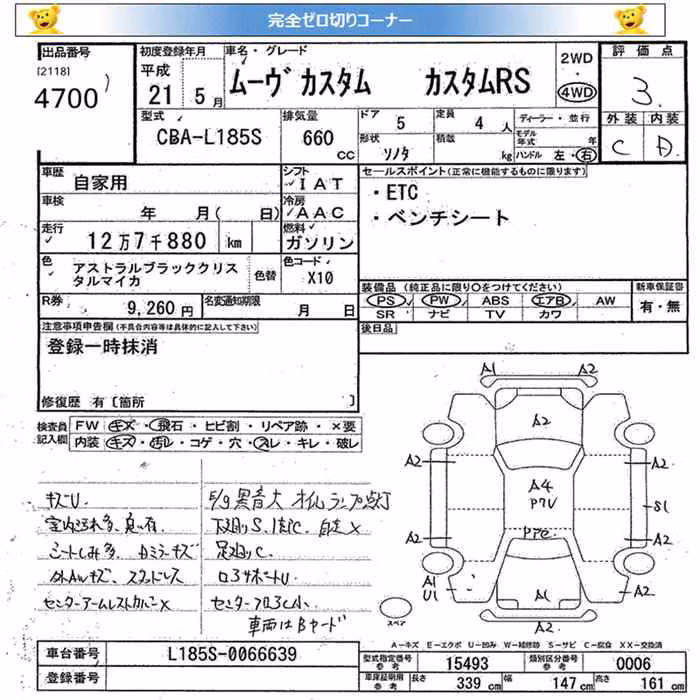 完全ゼロ切りコーナー
出品番号
[2118]
4700
初度登録年月
平成
21 5月
車名・グレード
ムーヴ カスタム カスタムRS
2WD
・
4WD
評価点
3.
外装 内装
C D
型式
CBA-L185S
排気量
660
CC
ドア
5
定員
4人
形状
ソノタ
積載
kg
ディーラー・並行
モデル年式
年
ハンドル 左・右
車歴
自家用
シフト
IAT
車検
年 月( 日)
冷房
AAC
走行
12万7千880 km
燃料
ガソリン
色
アストラルブラッククリス
タルマイカ
色替
色コード
X10
R券
9,260円
名変通知期限
月 日
セールスポイント(正常に機能するものに限ります)
・ETC
・ベンチシート
装備品 (純正品に限り○をつけてください)
PS PW ABS エアB AW
SR ナビ TV カワ
新車保証書
有・無
後日品
注意事項申告欄(不具合内容等は具体的に記入して下さい)
登録一時抹消
修復歴 有〔箇所
検査員
記入欄
FW キズ・飛石・ヒビ割・リペア跡・×要
内装 キズ・汚レ・コゲ・穴・スレ・キレ・破レ
キズU.
シートしみ多
外AWキズ、スタッドレス
センターアームレストカバー×
E/g異音大 オイルランプ点灯
下廻りS.
足廻りC.
ロアサポートU
センターフロアC小
車両はBヤード
A1
A2
A2
A2
A2
A4
S1
A2
A2
A1
U1
A1
A2
A2
スペア
A-キズ E-エクボ U-凹み W-補修跡 S-サビ C-腐食 XX-交換済
車台番号
L185S-0066639
登録番号
型式指定番号
参考
15493
類別区分番号
参考
0006
車庫証明用
参考
長さ
339cm
幅
147cm
高さ
161cm